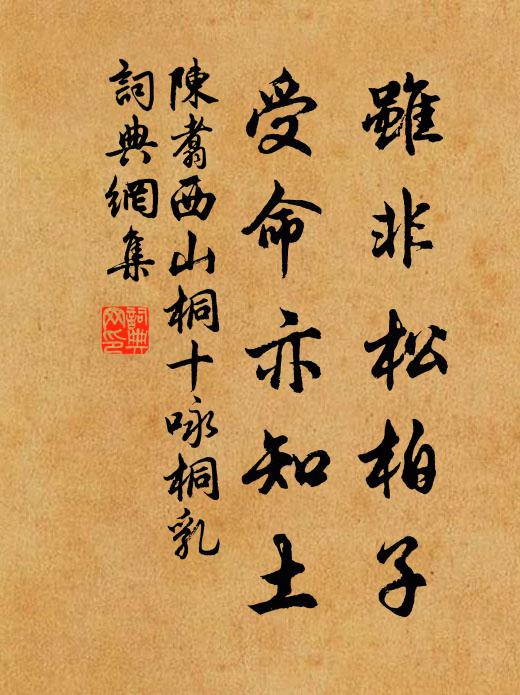 雖非松柏子
受命亦知土
陳翥西山桐十咏桐乳
詞典網集
詞典網印